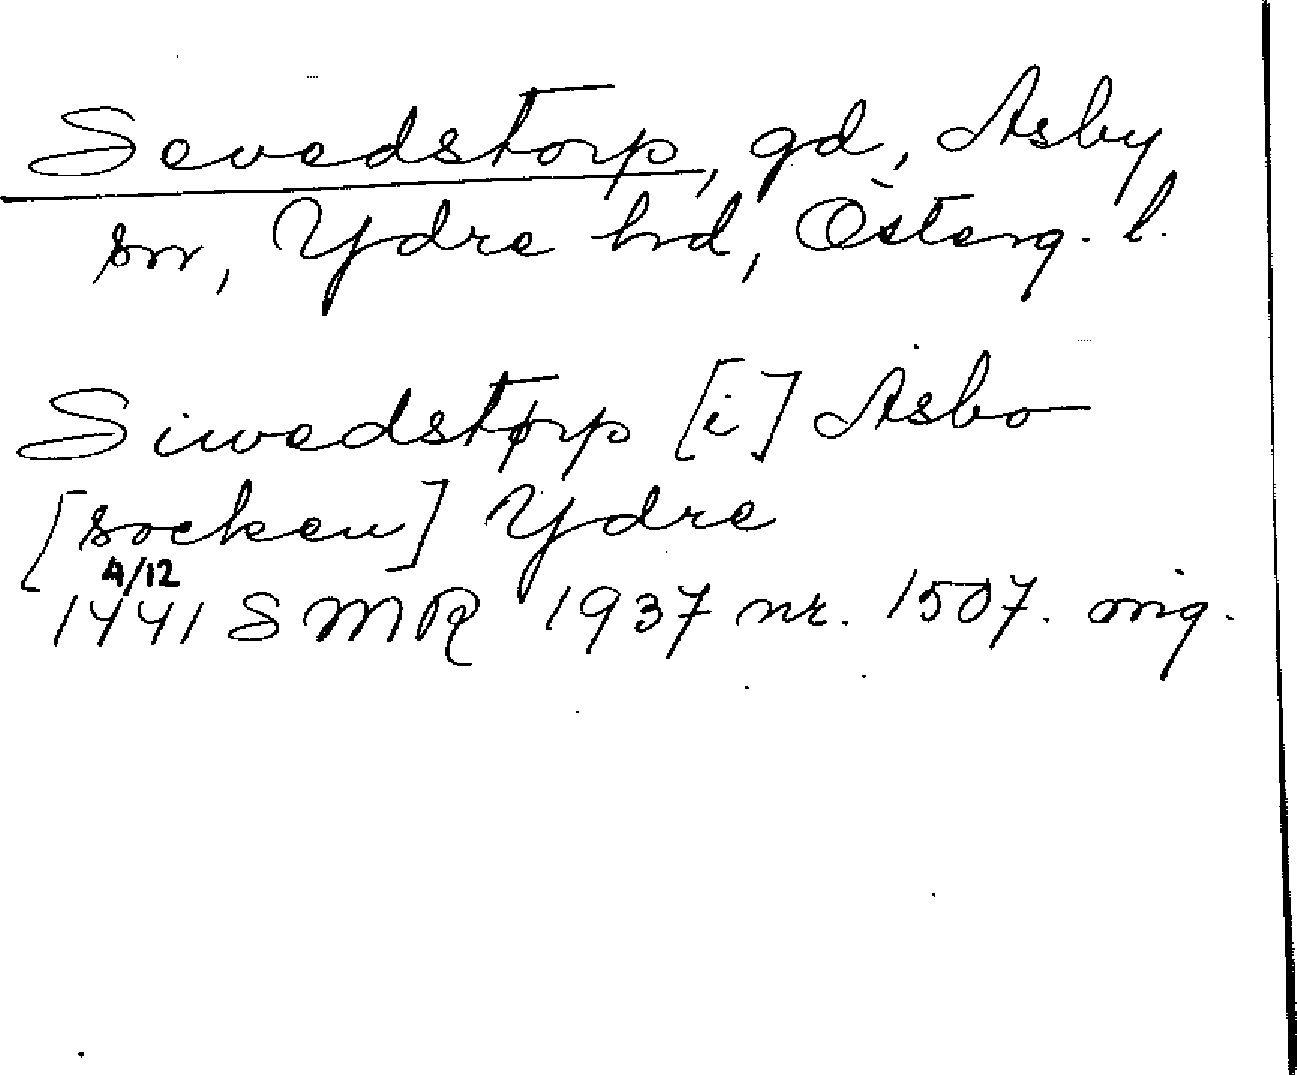 Sevedstorp, gd, Asby
sn, Ydre hd, Österg. l.
Siwedstørp [i] Asbo
[socken] Ydre
4/12
1441 SMR 1937 nr. 1507. orig.